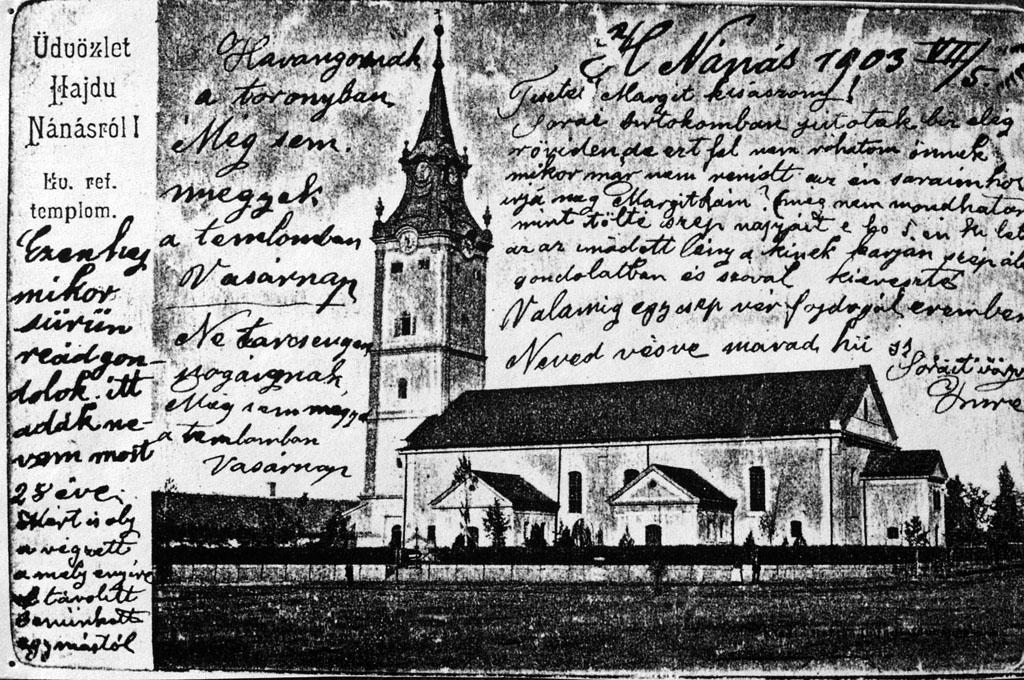 Üdvözlet
Hajdu
Nánásról!
Ev. ref.
templom.
Ezen hely
mikor
sürün
reád gon-
dolok. itt
adák ne-
vem most
28 éve.
Mért is oly
a végzett
a mely enyire
el távolitt
benünkett
egymástól
Havangoznak
a toronyban
Még sem
megyek
a temlomban
Vasárnap
Ne
Még sem megye
a temlomban
Vasárnap
H Nánás 1903 VII/5.
Tisztel Margit kisaszony!
Sorai birtokomban jutotak bír elég
röviden de ezt fel nem róhatom önnek
mikor már nem az én soraimhoz
irja meg Margitkám? meg nem mondhatom
mint tölté szép napjait e hó 5.én ki let
az az imádott lény a kinek karján
gondolatban és szoval
Valamig egy csep vér eremben
Neved vésve marad hü
Sorait
Imre